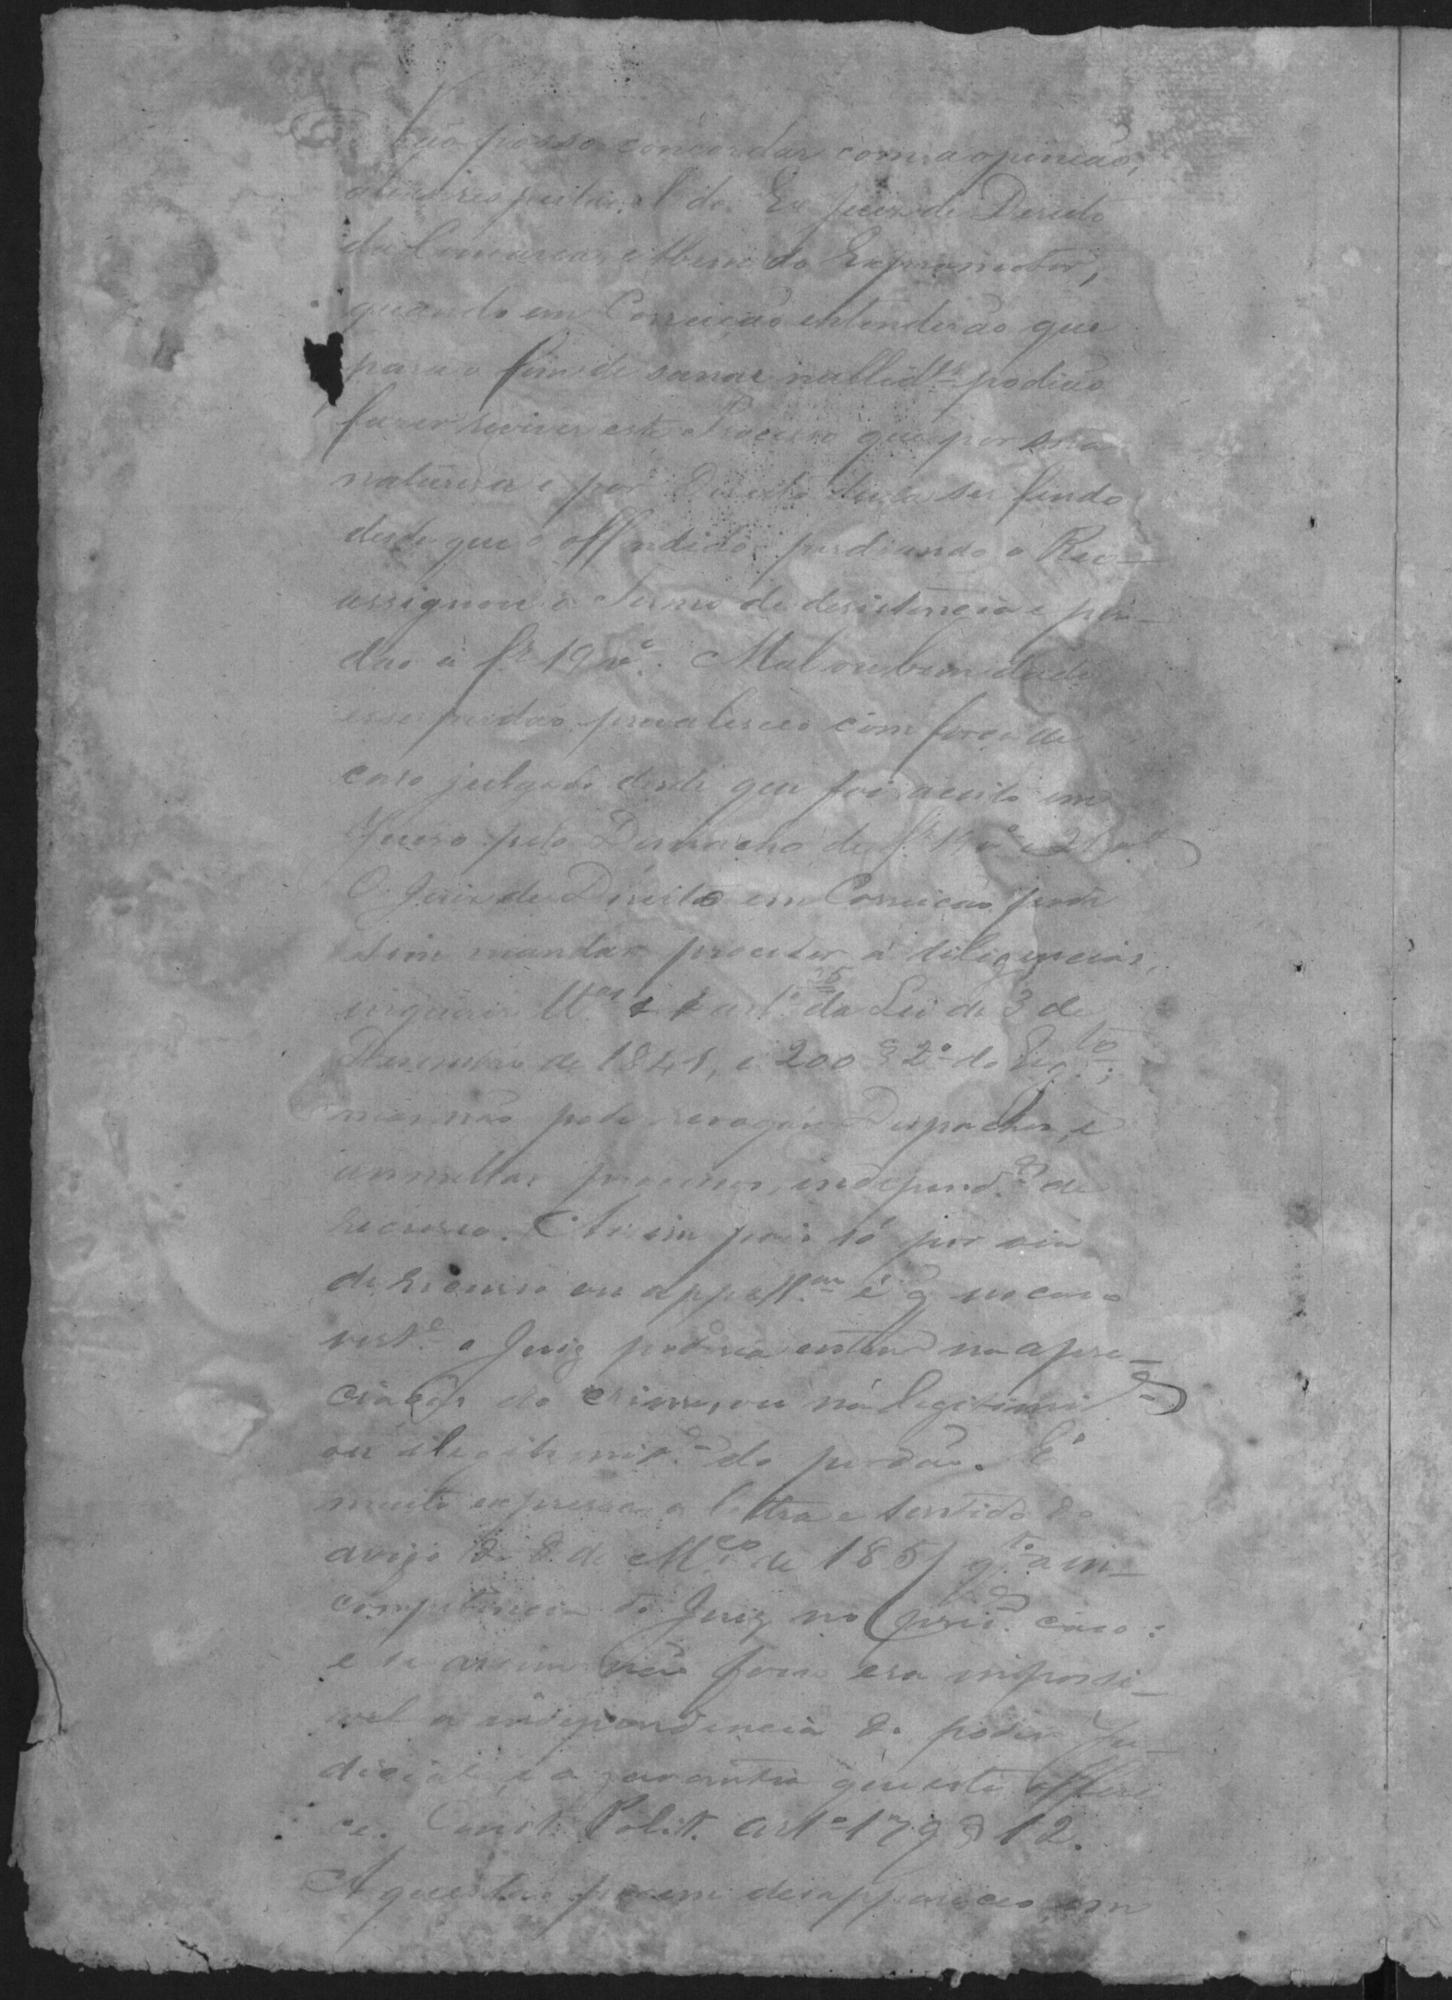 Não posso concordar com a opinião,
aliás respeitavel do Ex Juiz de Direito
da Comarca, e Mmo do Expromotor,
quando em Correição entenderão que
para o fim de sanar nullid.es podião
fazer reviver este Processo que por sua
naturesa e por Direito devia ser findo
desde que o offendido perdoando o Reo
assignou o Termo de desistencia e per-
dão á fs 19 vo. Mal ou bem dado
esse perdão prevaleceo com força de
caso julgado desde que foi aceito em
Juiso pelo Despacho de fs 19 vo e 21 vo
O Juiz de Direito em Correição pode
sim mandar proceder á diligencias,
inquirir tt.as art.o da Lei de 3 de
Desembro de 1841, e 200 § 2o do Reg.to;
mas não pode revogar Despachos, e
annullar processos, independ.e de
recurso. Assim pois só por via
de recurso ou appell.am é q no caso
vert.e o Juiz poderia entrar na apre-
ciação do crime, ou na legitimid.e
ou illegitimid.e do perdão. É
muito expressa a letra e sentido do
aviso de 8 de M.ço de 1851 q.to a in-
competencia do Juiz no caso:
e se assim não fora era impossi-
vel a independencia do poder Ju-
dicial, e a garantia que este offere
ce. Const. Polit. art.o 179 § 12.
A questão porem desappareceo em